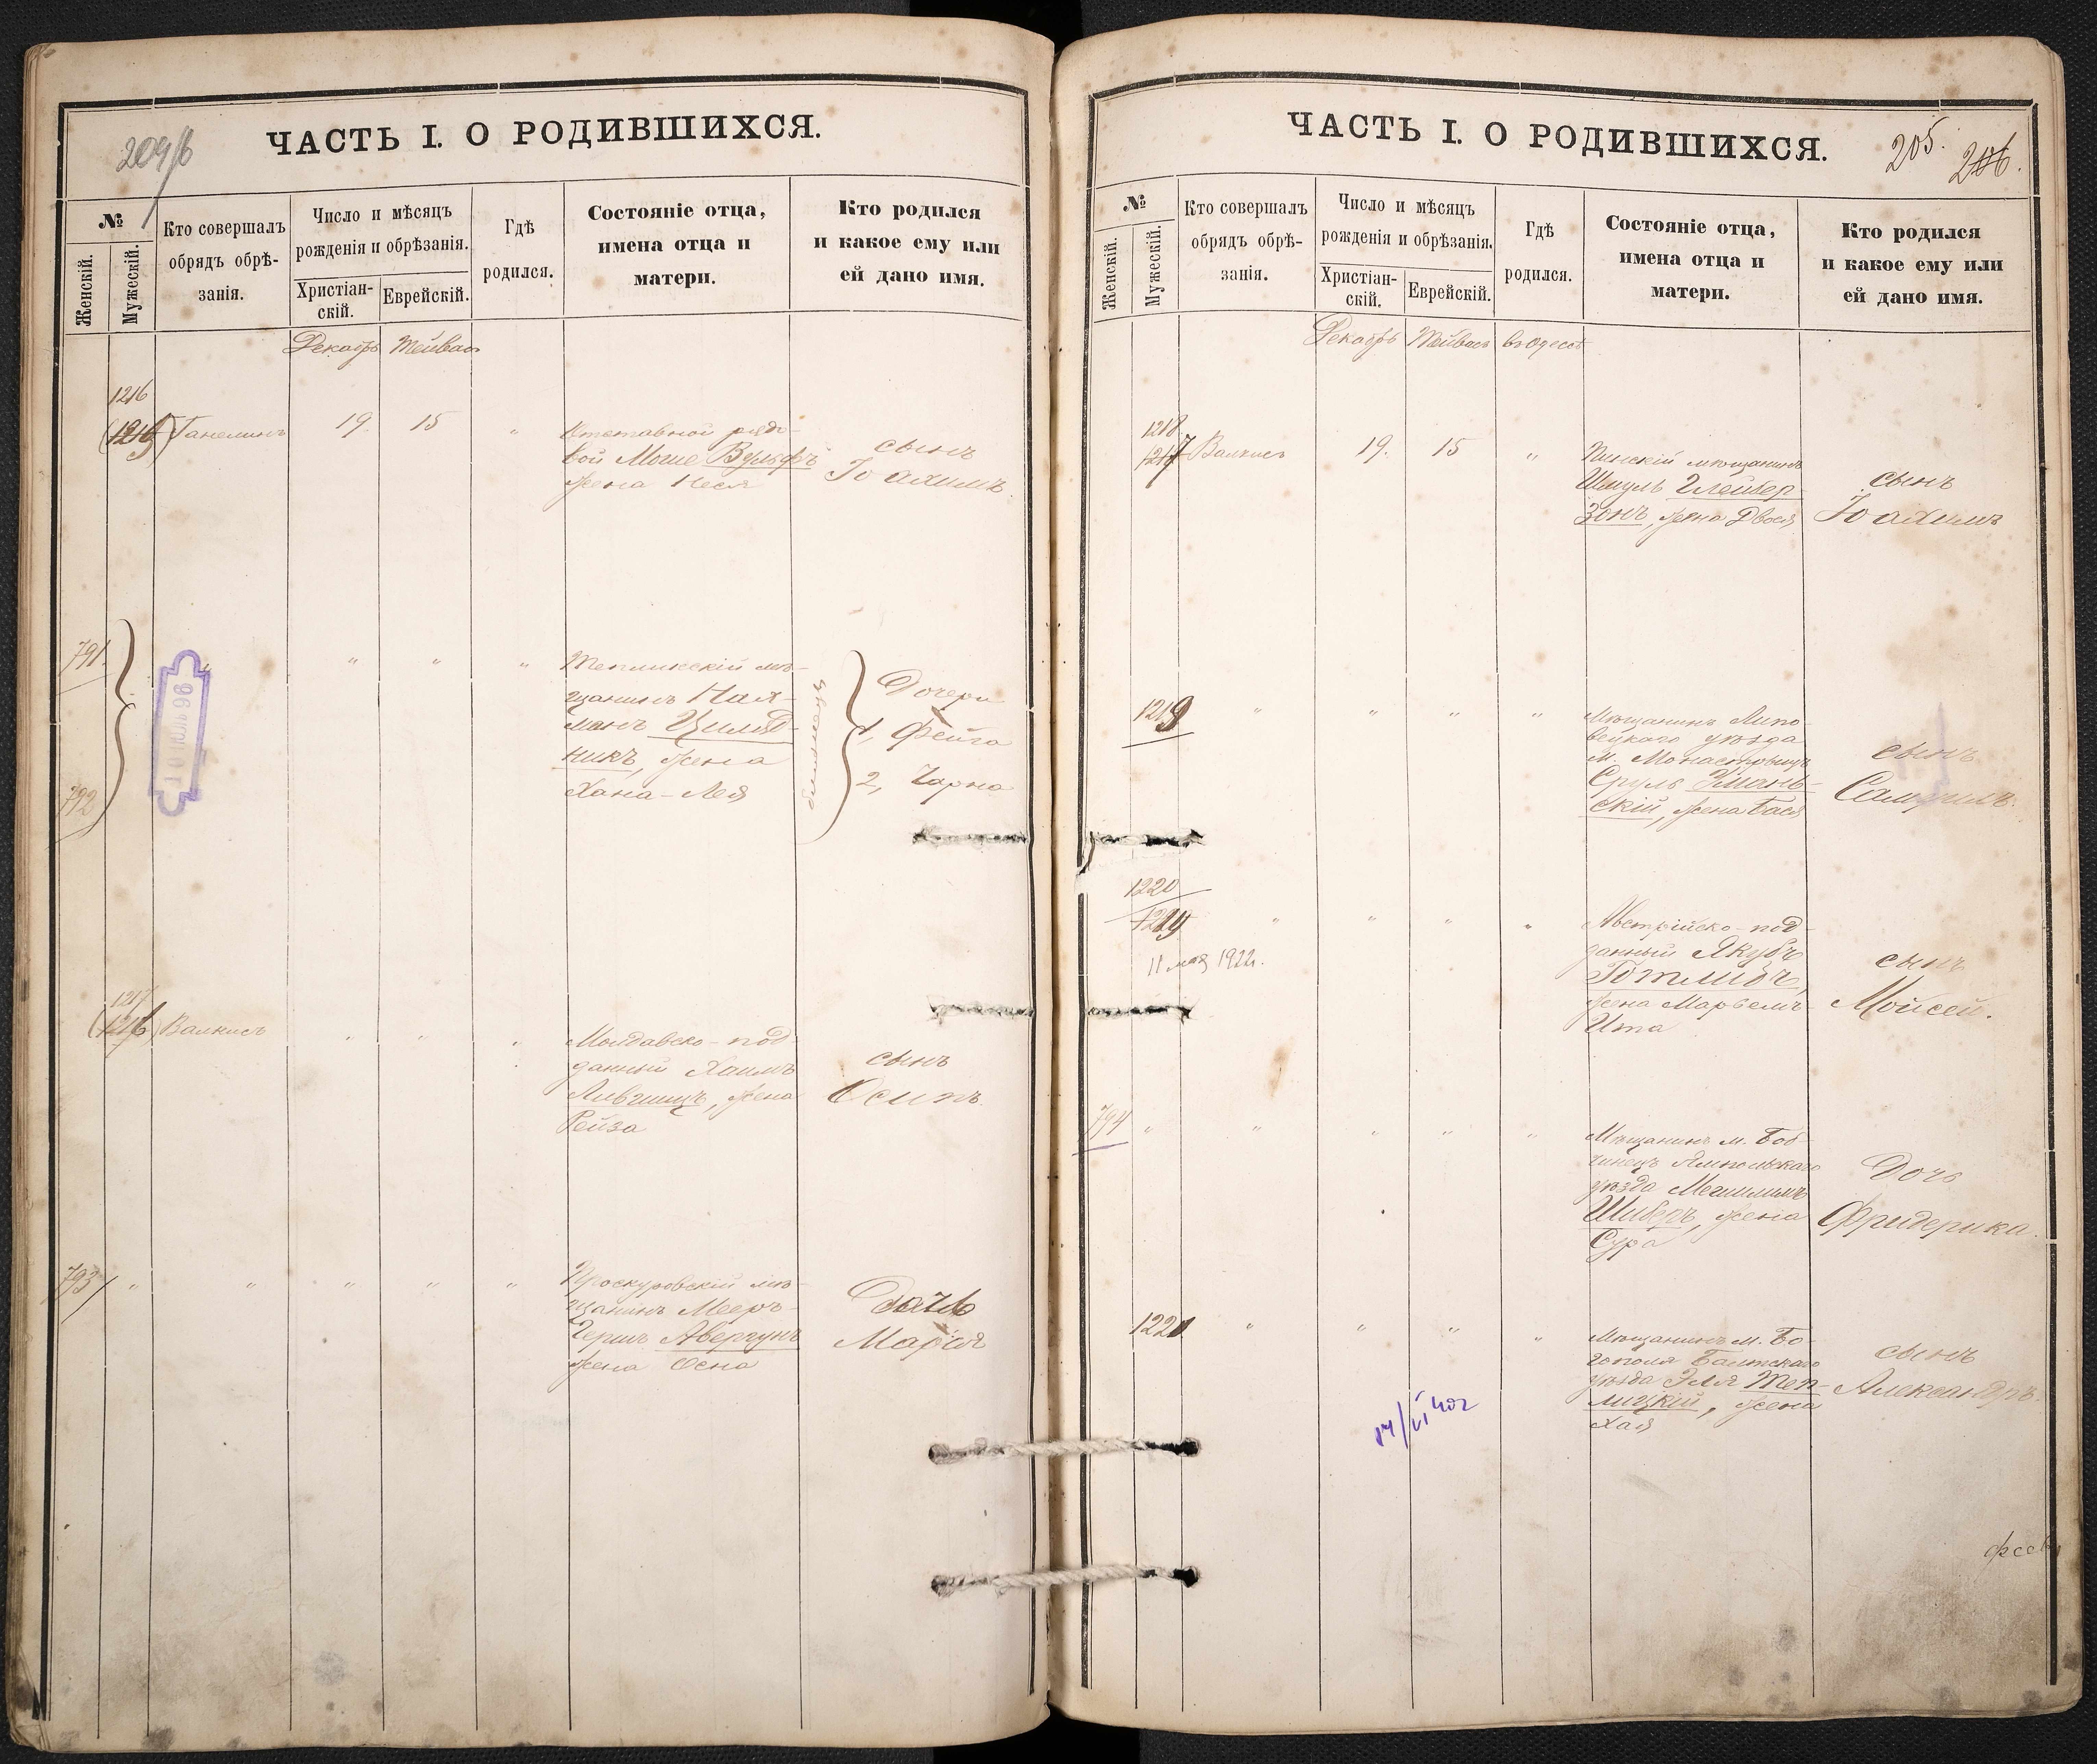 204/б
ЧАСТЬ I. О РОДИВШИХСЯ.
№
Женскій.
Мужескій.
Кто совершалъ
обрядъ обрѣ-
занія.
Число и мѣсяцъ
рожденія и обрѣзанія.
Христіан-
скій.
Еврейскій.
Гдѣ
родился.
Состояніе отца,
имена отца и
матери.
Кто родился
и какое ему или
ей дано имя.
Декабрь Тейвас
1216
Ганелинъ 19. 15 „ Отставной рядо-
вой Моше Вульфъ
жена Неся
сынъ
Іоахимъ.
791.
792
„ „ „ Тепликскій мѣ-
щанинъ Нах-
манъ
никъ, жена
Хана-Лея
близнецы
Дочери
1, Фейга
2, Чарна
1217
(1216) Валкисъ „ „ „ Молдавско-под-
данный Хаимъ
Лившицъ, жена
Рейза
сынъ
Осипъ.
793 „ „ „ „ „ Проскуровскій мѣ-
щанинъ Мееръ-
Гершъ Авергунъ
жена Осна
Дочь
Марія
ЧАСТЬ I. О РОДИВШИХСЯ.
205. 206.
№
Женскій.
Мужескій.
Кто совершалъ
обрядъ обрѣ-
занія.
Число и мѣсяцъ
рожденія и обрѣзанія.
Христіан-
скій.
Еврейскій.
Гдѣ
родился.
Состояніе отца,
имена отца и
матери.
Кто родился
и какое ему или
ей дано имя.
Декабрь Тейвас въ Одессѣ
1218
1217 Валкисъ 19. 15 „ Пинскій мѣщанинъ
Шмуль Глейбер-
зонъ, жена Двося
сынъ
Іоахимъ
1219 „ „ „ „ Мѣщанинъ Липо-
вецкаго уѣзда
м. Монастырищъ
Сруль Умань-
скій, жена Бася
сынъ
Самуилъ.
1220
1219 „ „ „ „ Австрійско-под-
данный Якубъ
Готлибъ,
жена Марьемъ-
Ита
сынъ
Мойсей.
11 мая 1922г.
794 „ „ „ „ „ Мѣщанинъ м.
Ямпольскаго
уѣзда Мешилимъ
Шиберъ, жена
Сура
Дочь
Фридерика.
1221 „ „ „ „ Мѣщанинъ м. Бо-
гополя Балтскаго
уѣзда Эля Теп-
лицкій, жена
Хая
сынъ
Александръ.